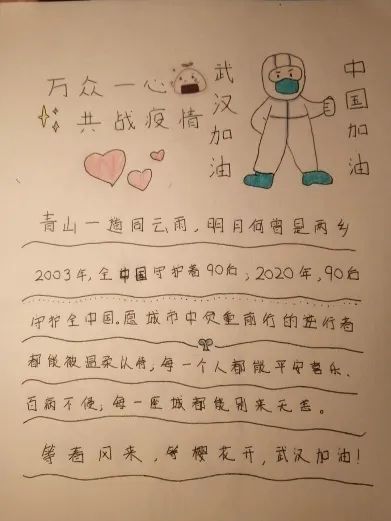 万众一心
共战疫情
武汉加油
中国加油
青山一道同云雨，明月何曾是两乡
2003年，全中国守护着90后；2020年，90后
守护全中国。愿城市中负重前行的逆行者
都能被温柔以待，每一个人都能平安喜乐、
百病不侵；每一座城都能别来无恙。
等着风来，等樱花开，武汉加油！